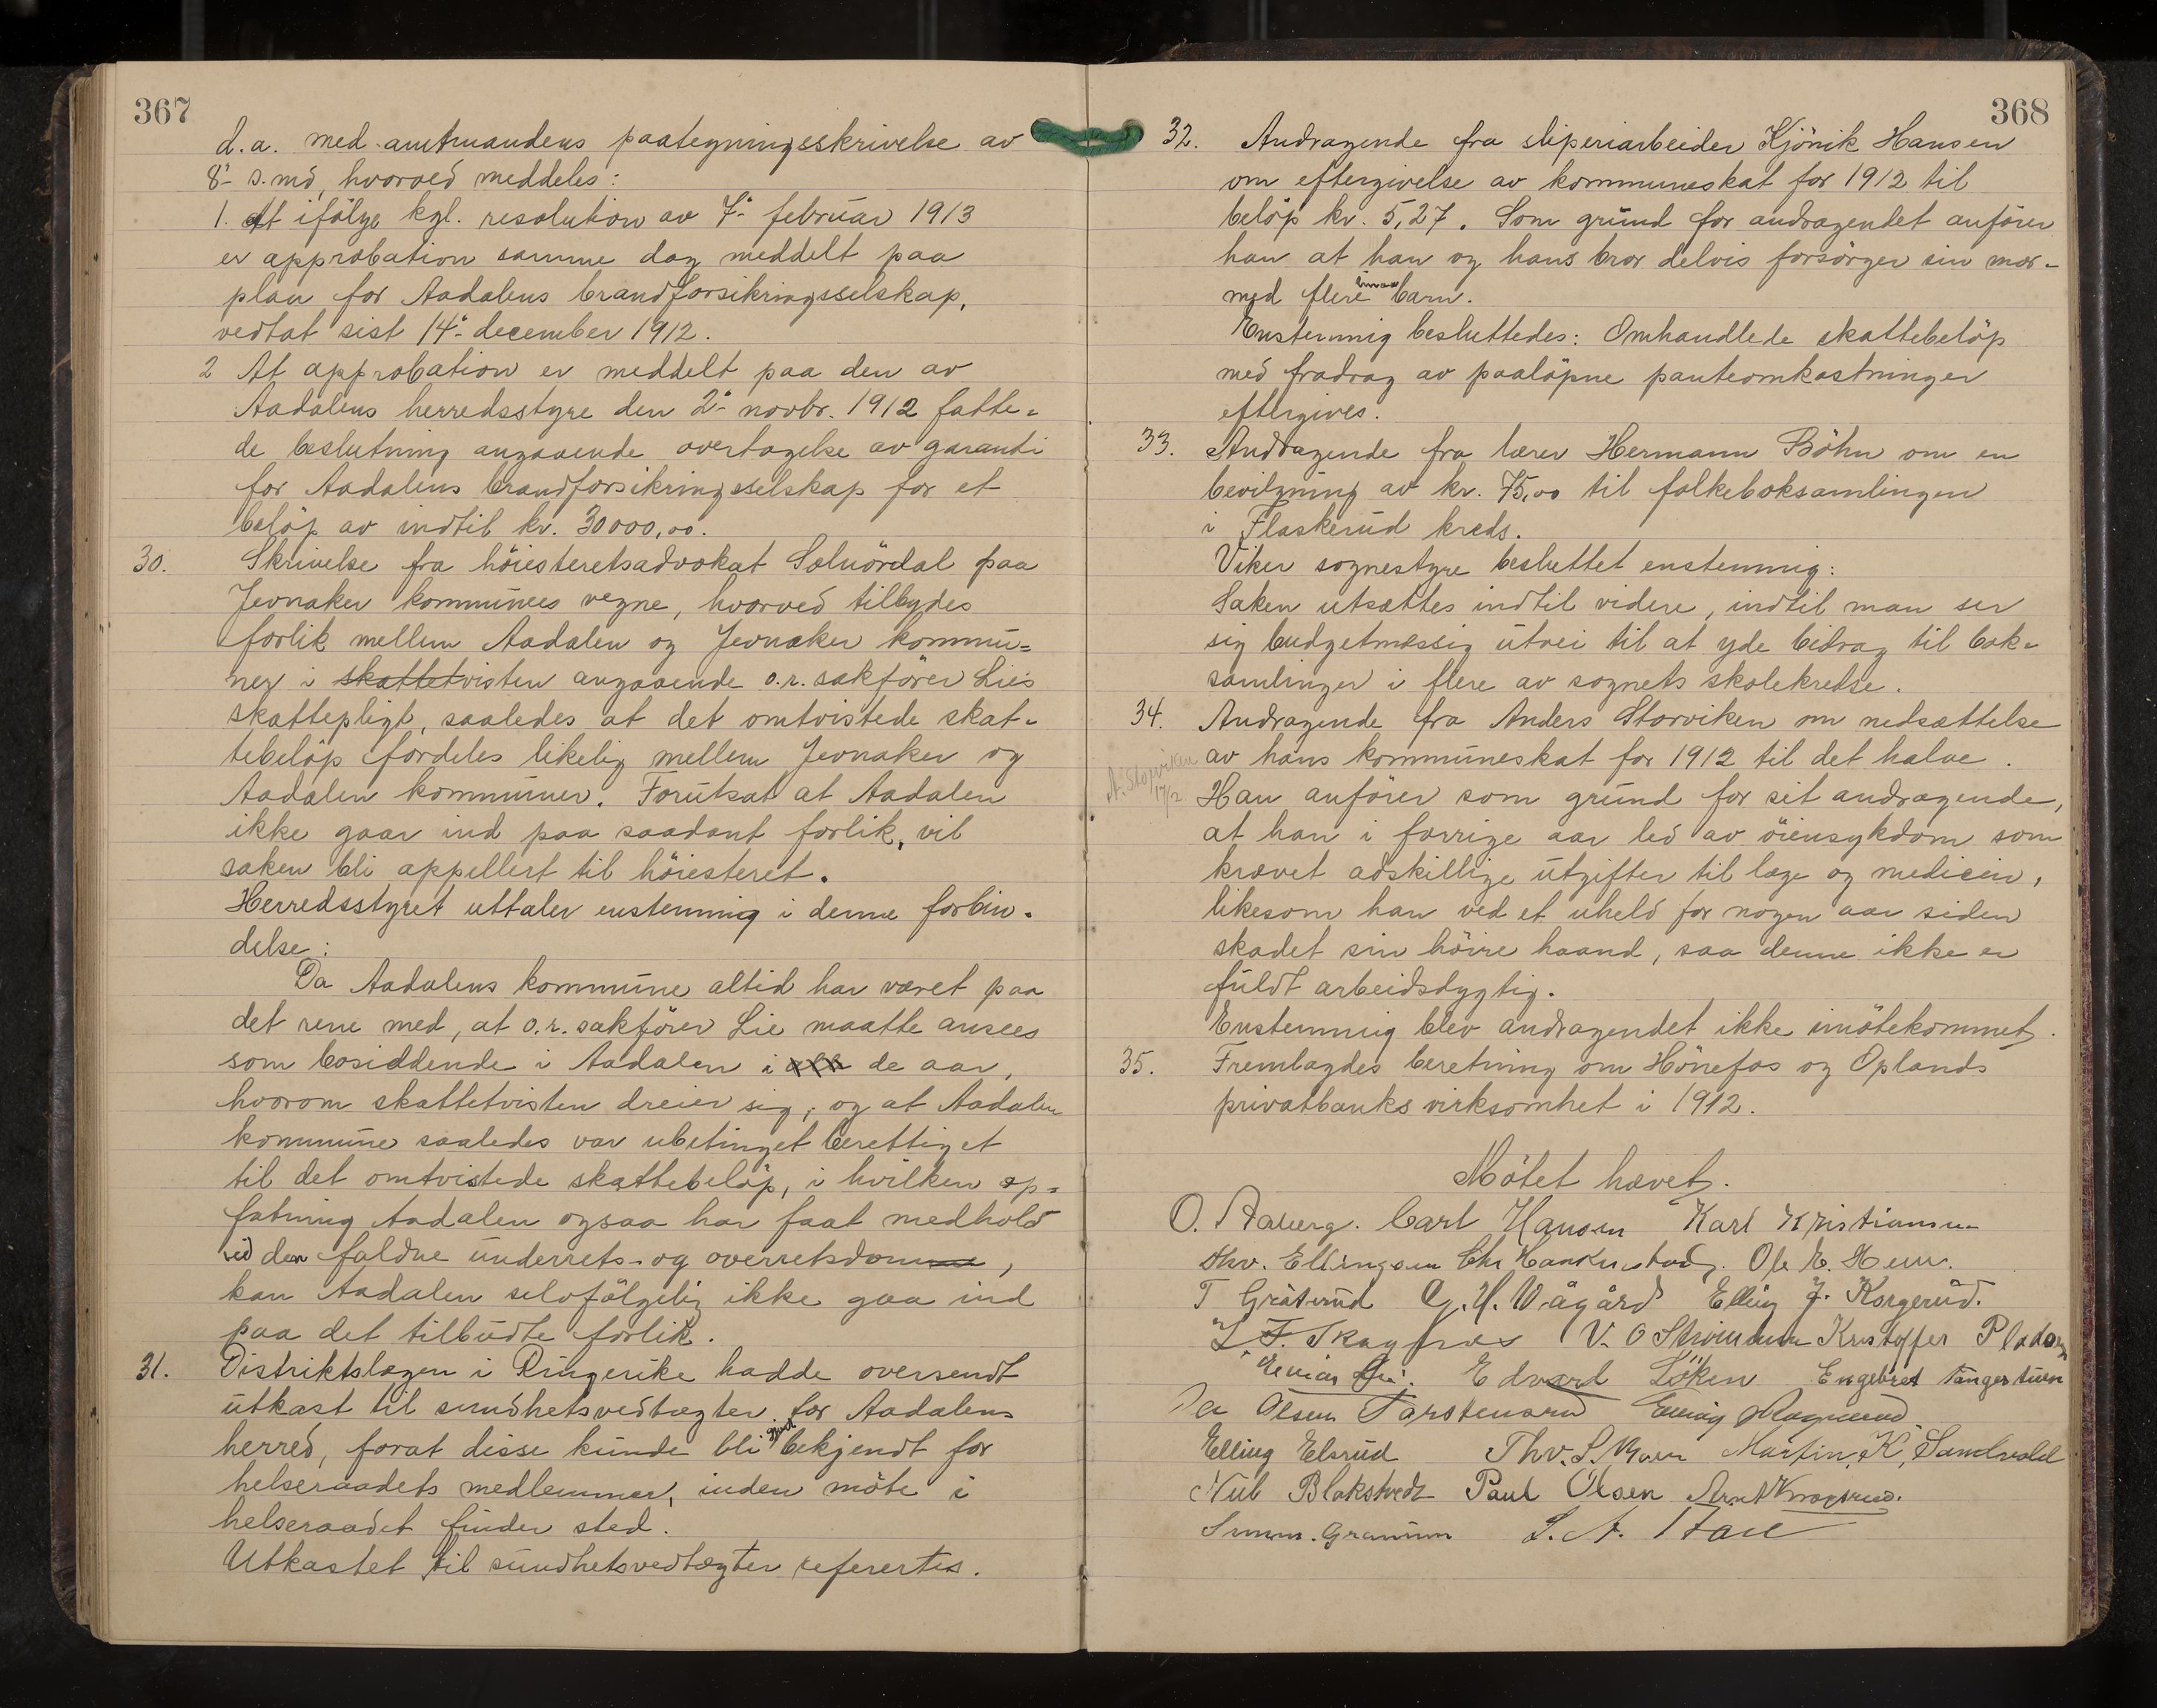 367
d.a. med amtmandens paategningsskrivelse av
8de s.md, hvorved meddeles:
1. At ifölge kgl. resolution av 7de februar 1913
er approbation samme dag meddelt paa
plan for Aadalens brandforsikringsselskap,
vedtat sist 14de december 1912.
2 At approbation er meddelt paa den av
Aadalens herredsstyre den 2de novbr. 1912 fatte-
de beslutning angaaende overtagelse av garanti
for Aadalens brandforsikringsselskap for et
belöp av indtil kr. 30000,00.
30. Skrivelse fra höiesteretsadvokat Solnördal paa
Jevnaker kommunes vegne, hvorved tilbydes
forlik mellem Aadalen og Jevnaker kommu-
ner i skattetvisten angaaende o.r. sakförer Lies
skattepligt, saaledes at det omtvistede skat-
tebelöp fordeles likelig mellem Jevnaker og
Aadalen kommuner. Forutsat at Aadalen
ikke gaar ind paa saadant forlik, vil
saken bli appellert til höiesteret.
Herredsstyret uttaler enstemmig i denne forbin-
delse:
Da Aadalens kommune altid har været paa
det rene med, at o.r. sakförer Lie maatte ansees
som bosiddende i Aadalen i de aar,
hvorom skattetvisten dreier sig, og at Aadalen
kommune saaledes var ubetinget berettiget
til det omtvistede skattebelöp, i hvilken op-
fatning Aadalen ogsaa har faat medhold
ved den faldne underrets- og overretsdom,
kan Aadalen selvfölgelig ikke gaa ind
paa det tilbudte forlik.
31. Distriktslægen i Ringerike hadde oversendt
utkast til sundhetsvedtægter for Aadalens
herred, forat disse kunde bli gjort bekjendt for
helseraadets medlemmer, inden möte i
helseraadet finder sted.
Utkastet til sundhetsvedtægter refertes.
368
32. Andragende fra sliperiarbeider Kjönik Hansen
om eftergivelse av kommuneskat for 1912 til
belöp kr. 5,27. Som grund for andragendet anförer
han at han og hans bror delvis forsörger sin mor
med flere smaa barn.
Enstemmig besluttedes: Omhandlede skattebelöp
med fradrag av paalöpne panteomkostninger
eftergives.
33. Andragende fra lærer Hermann Böhn om en
bevilgning av kr. 75,00 til folkeboksamlingen
i Flaskerud kreds.
Viker sognestyre besluttet enstemmig:
Saken utsættes indtil videre, indtil man ser
sig budgetmæssig utvei til at yde bidrag til bok-
samlinger i flere av sognets skolekredse.
34. Andragende fra Anders Storviken om nedsættelse
av hans kommuneskat for 1912 til det halve.
A. Storviken
17/2
Han anförer som grund for sit andragende,
at han i forrige aar led av öiensykdom som
krævet adskillige utgifter til læge og medicin,
likesom han ved et uheld for nogen aar siden
skadet sin höire haand, saa denne ikke er
fuldt arbeidsdygtig.
Enstemmig blev andragendet ikke imötekommet.
35. Fremlagdes beretning om Hönefos og Oplands
privatbanks virksomhet i 1912.
Mötet hævet.
O. Aaberg. Carl Hansen Karl Kristiansen
Thv. Ellingsen Chr Hankerstad. Ole E. Hem.
T Gråterud G. H. Vågård Elling J. Korgerud.
F. Skagfnæs V. O Strömmen Kristoffer Pladsen
Einar Edvard Löken Engebret Tangerstuen
Olsen Elling
Elling Elsrud Thv. S. Moen Martin K. Sandvold
Nub Blakstvedt Paul Olsen Arnt
Granum